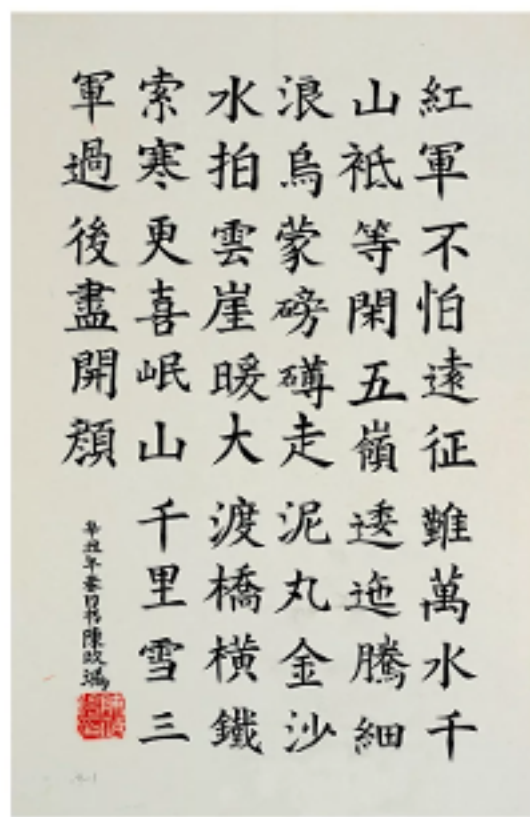 紅軍不怕遠征難萬水千
山祗等閑五嶺逶迤騰細
浪烏蒙磅礴走泥丸金沙
水拍雲崖暖大渡橋橫鐵
索寒更喜岷山千里雪三
軍過後盡開顏
辛丑年春日书陳政